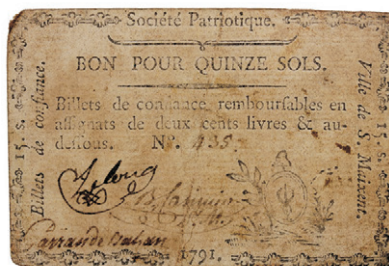 Société Patriotique.
BON POUR QUINZE SOLS.
Billets de confiance remboursables en
assignats de deux cents livres & au-
dessous. N°. 435.
1791.
15. s.
Billets de confiance.
Ville de S. Maixent.
15. s.